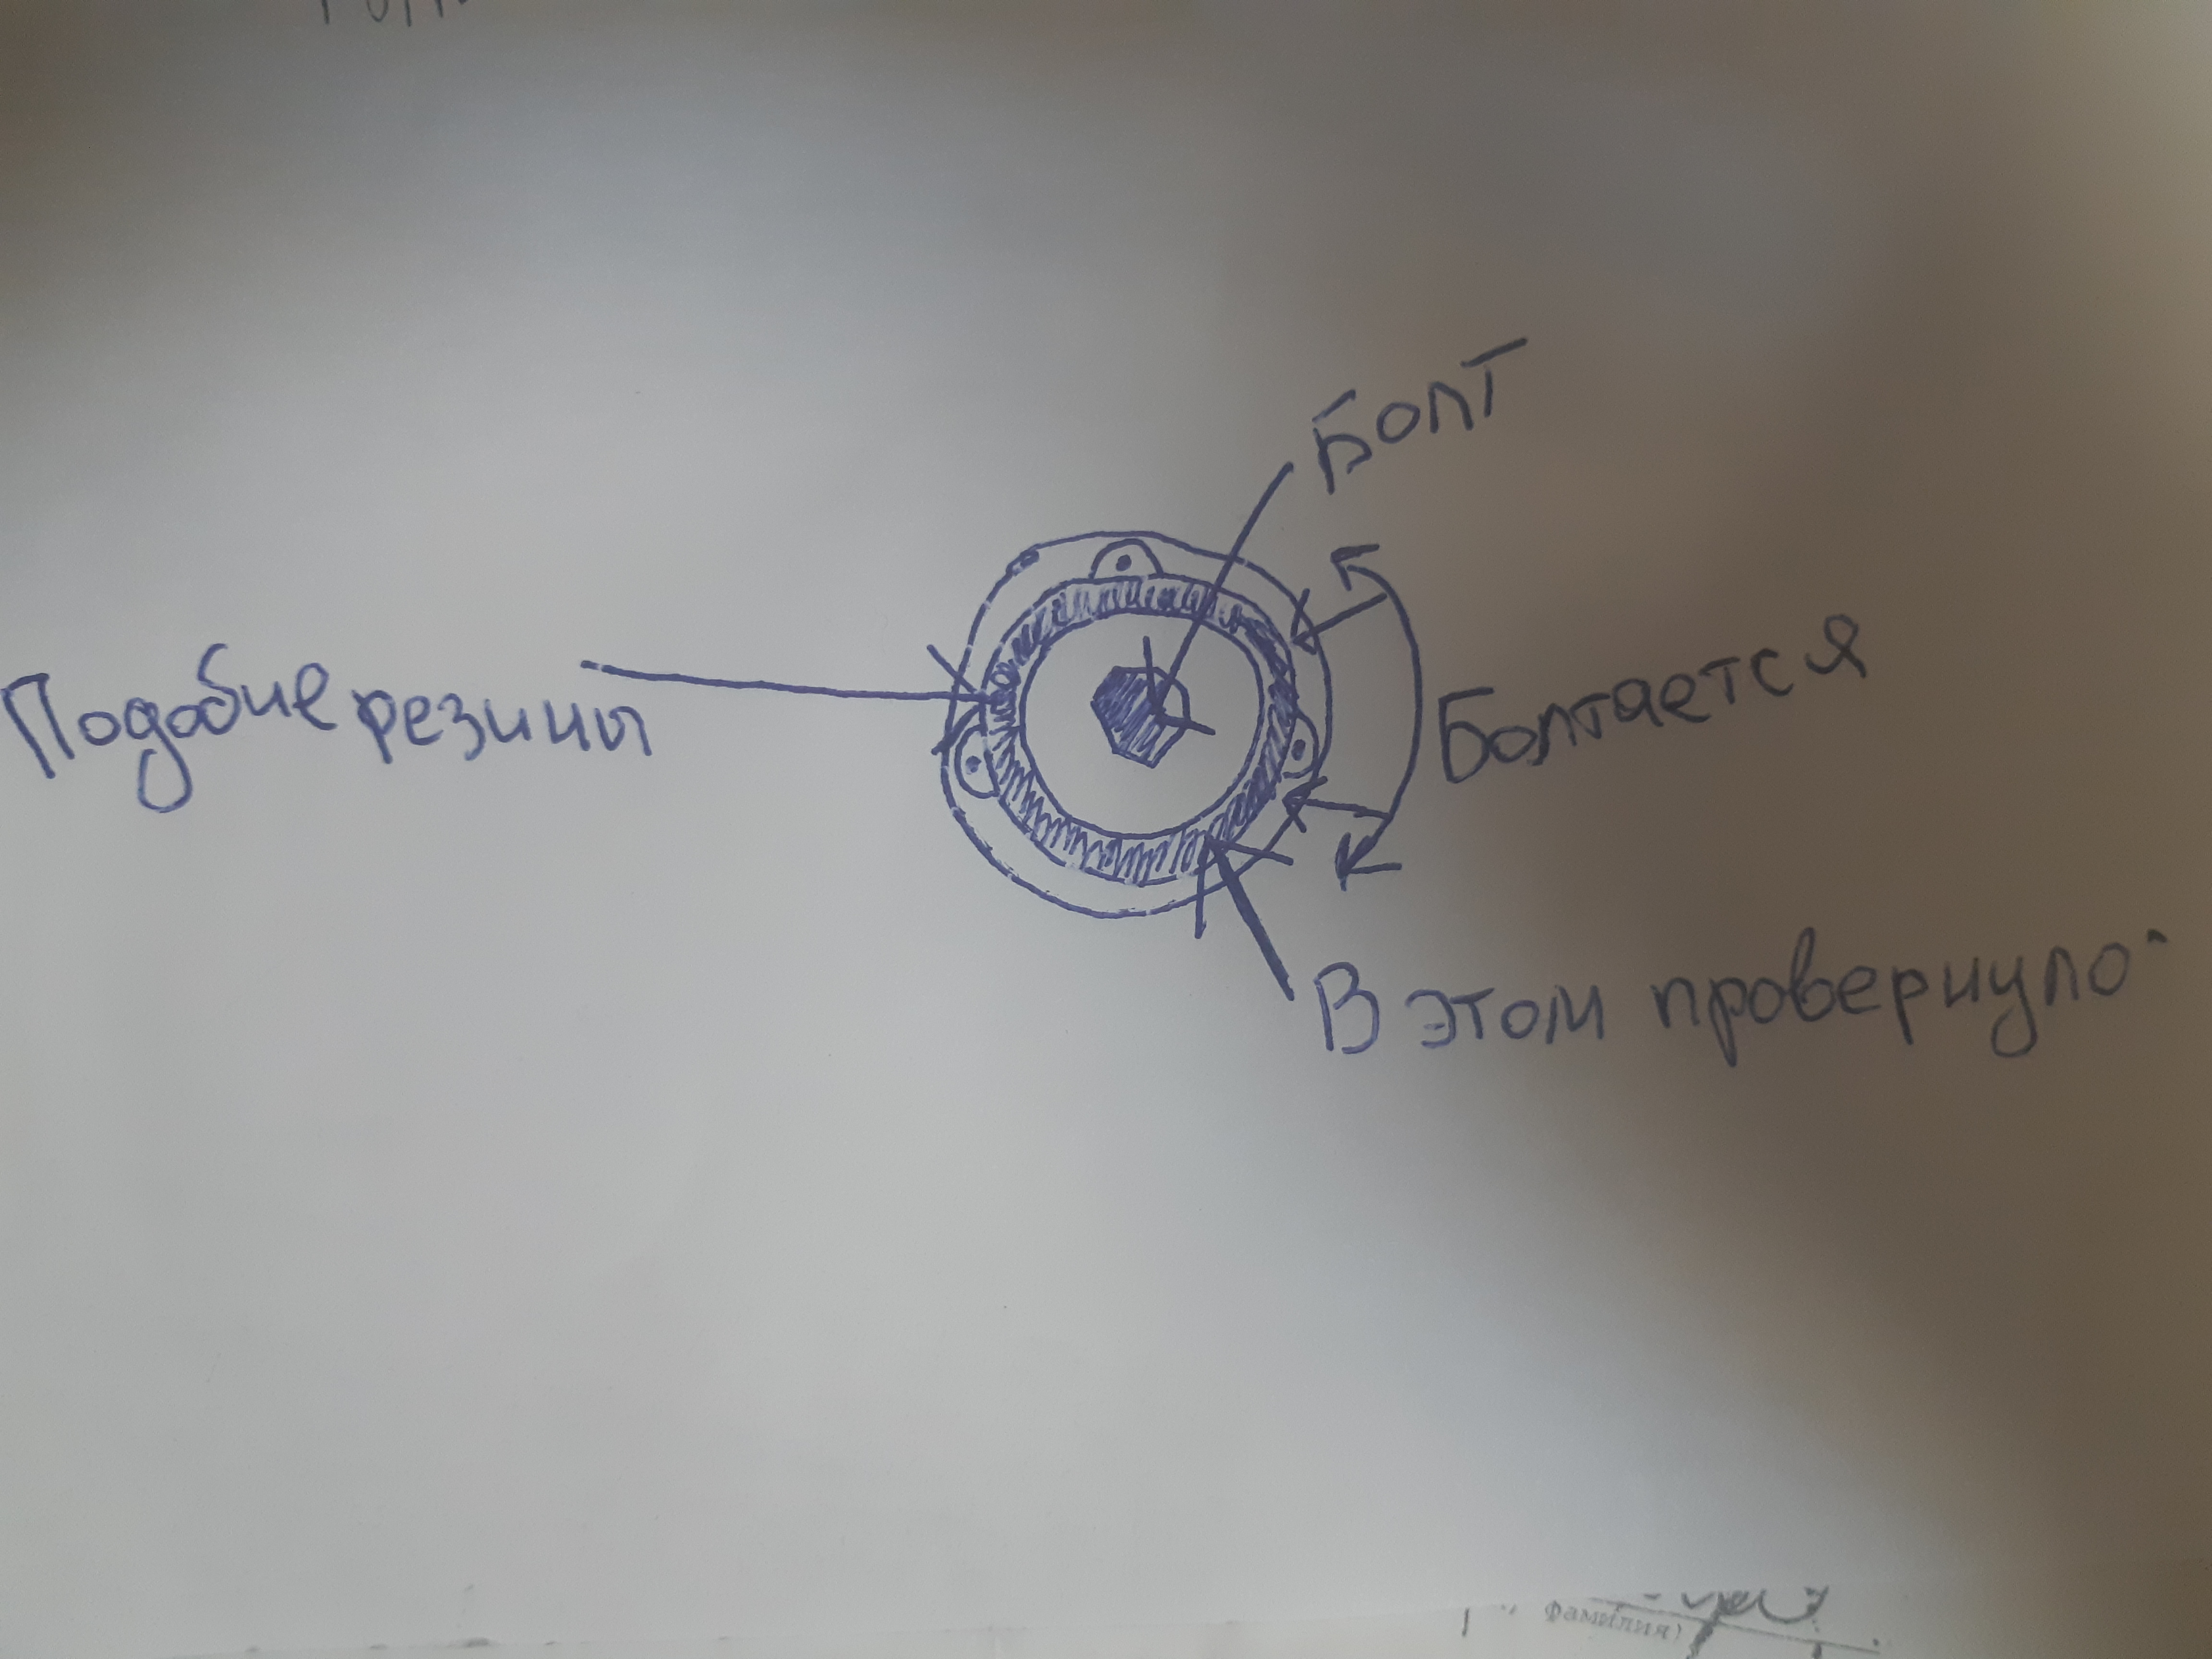 Болт
Подобие резины
Болтается
В этом провернуло
фамилия)